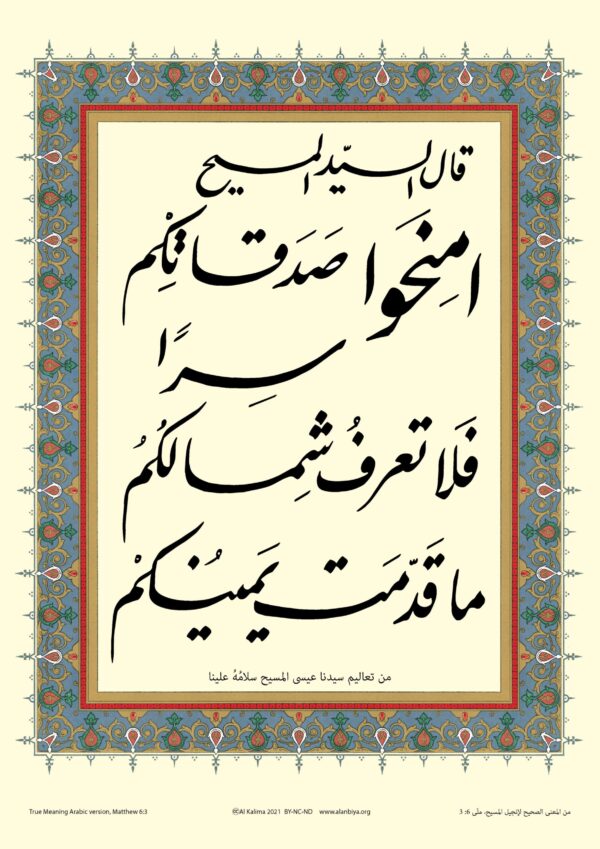 قال السيّد المسيح
امنِحَوا صَدَقاتِكْم
سِرًا
فَلا تعرفُ شِمالكُمُ
ما قَدّمَت يَمينُكمْ
من تعاليم سيدنا عيسى المسيح سلامُهُ علينا
True Meaning Arabic version, Matthew 6:3
@Al Kalima 2021 BY-NC-ND www.alanbiya.org
من المعنى الصحيح لإنجيل المسيح، متّى 6: 3